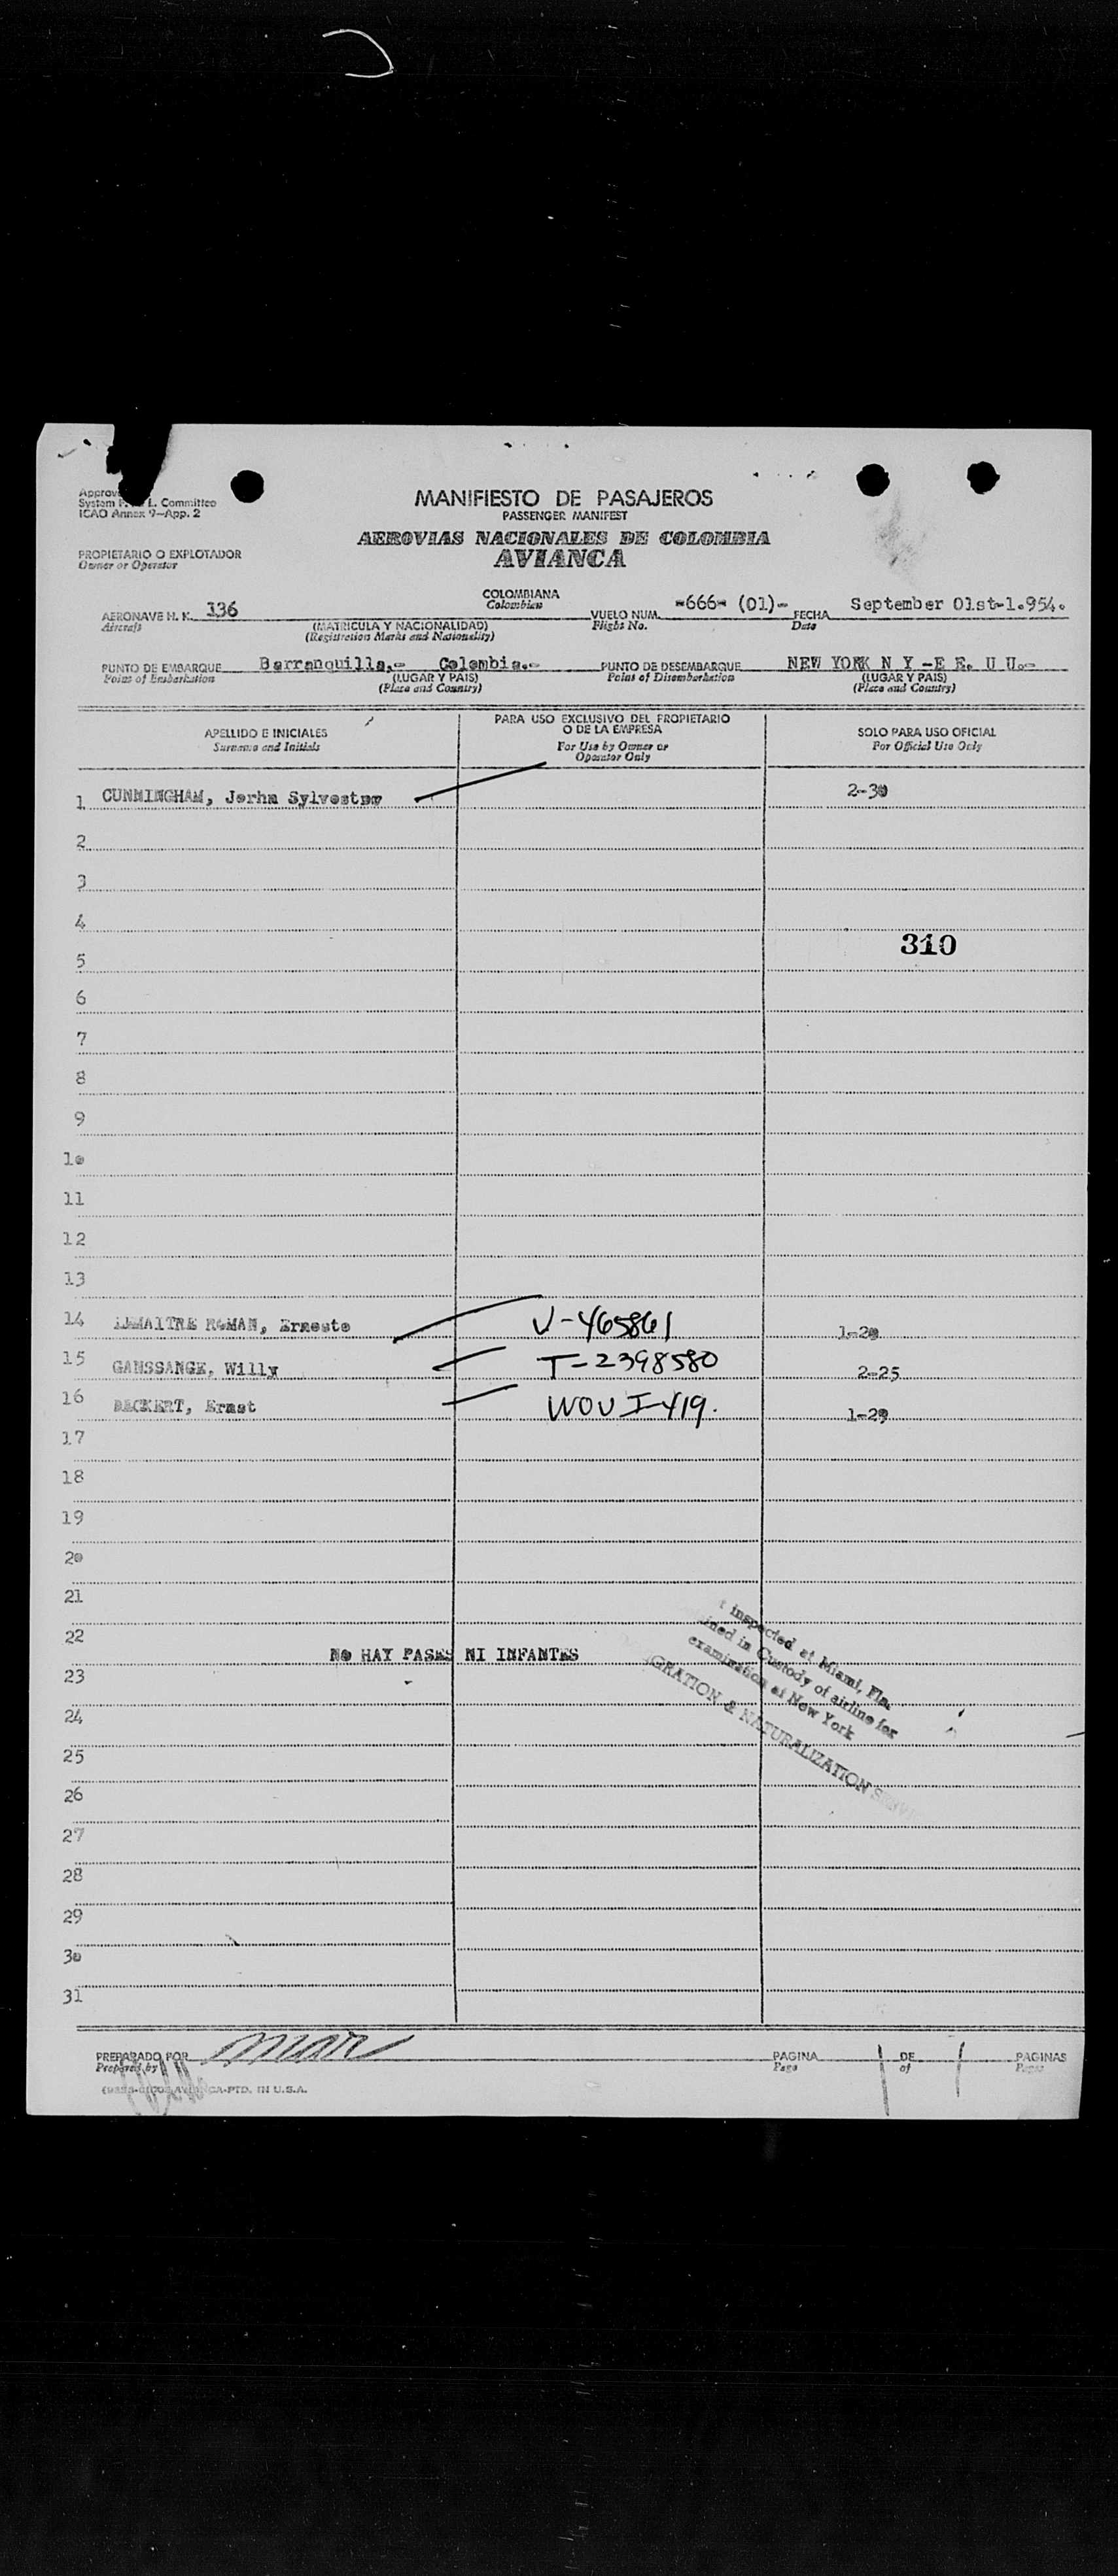 MANIFIESTO DE PASAJEROS
PASSENGER MANIFEST
AEROVIAS NACIONALES DE COLOMBIA
AVIANCA
System L. Committee
ICAO Annex 9-App. 2
PROPIETARIO O EXPLOTADOR
Owner or Operator
COLOMBIANA
Colombian
AERONAVE H. K. 136 VUELO NUM. -666- (01)- FECHA September 01st-1.954.
Aircraft (MATRICULA Y NACIONALIDAD) Flight No. Date
(Registration Marks and Nationality)
PUNTO DE EMBARQUE Barranquilla.- Colombia.- PUNTO DE DESEMBARQUE NEW YORK N Y -E E. U U.-
Point of Embarkation (LUGAR Y PAIS) Point of Disembarkation (LUGAR Y PAIS)
(Place and Country) (Place and Country)
APELLIDO E INICIALES
Surname and Initials
PARA USO EXCLUSIVO DEL PROPIETARIO
O DE LA EMPRESA
For Use by Owner or
Operator Only
SOLO PARA USO OFICIAL
For Official Use Only
1 CUNNINGHAM, Sylvester 2-30
2
3
4
310
5
6
7
8
9
10
11
12
13
14 ROMAN, Ernesto V-465861 1-20
15 GANSSANGE, Willy T-2398580 2-25
16 Ernst WOV I-419. 1-29
17
18
19
20
21
22
NO HAY PASES NI INFANTES
23
24
25
26
27
28
29
30
31
inspected at Miami, Fla.
in Custody of airline for
examination at New York
& NATURALIZATION SERVICE
PREPARADO POR PAGINA 1 DE 1 PAGINAS
Prepared by Page of Pages
PTD. IN U.S.A.